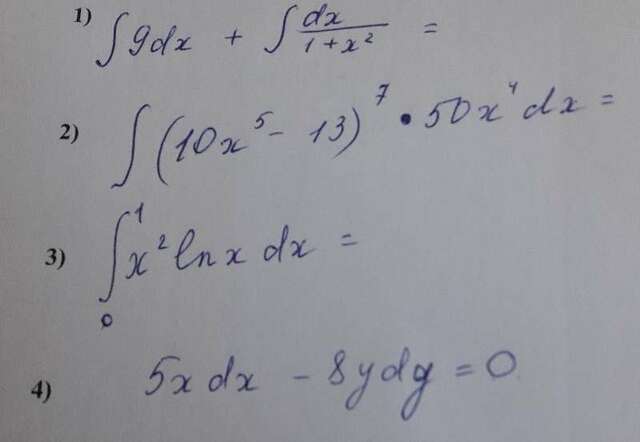 1) ∫ 9dx + ∫ dx/(1+x²) =
2) ∫ (10x⁵ - 13)⁷ • 50x⁴ dx =
3) ∫₀¹ x² ln x dx =
4) 5x dx - 8y dy = 0